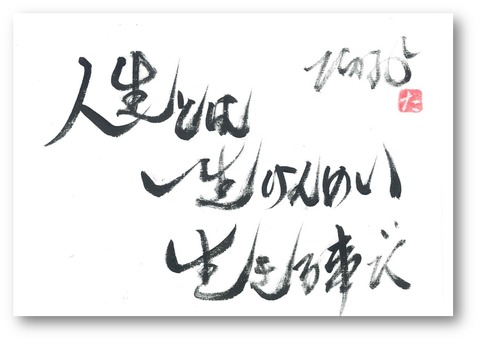 人生とは
一生けんめい
生きる事だ
た